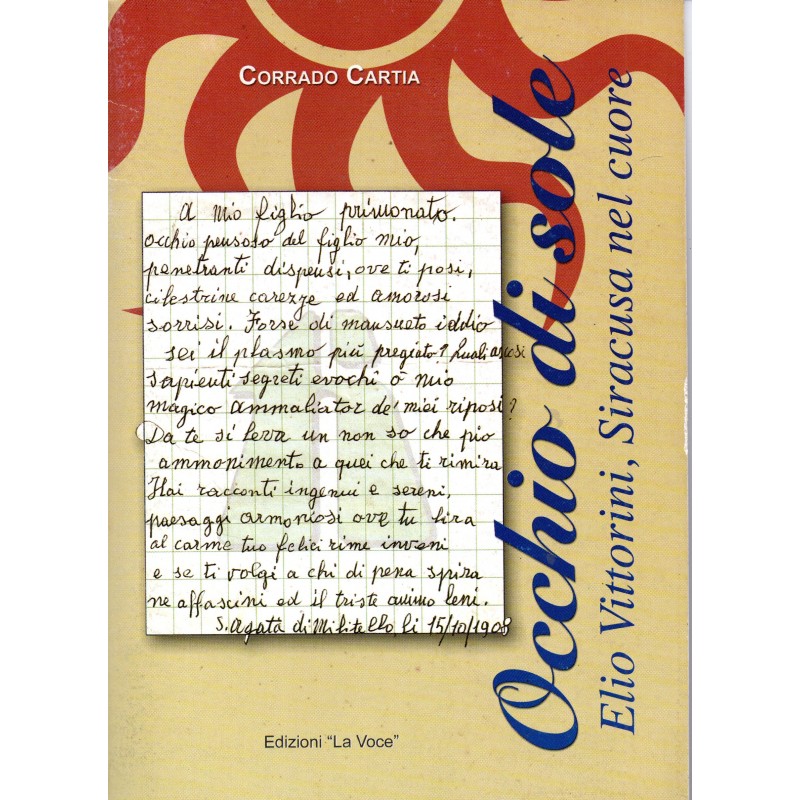 CORRADO CARTIA
A mio figlio primonato.
occhio pensoso del figlio mio,
penetranti dispensi, ove ti posi,
cilestrine carezze ed amorosi
sorrisi. Forse di mansueto iddio
sei il plasmo più pregiato? Quali ascosi
sapienti segreti evochi ò mio
magico ammaliator de' miei riposi?
Da te si leva un non so che pio
ammonimento a quei che ti rimira
Hai racconti ingenui e sereni,
paesaggi armoniosi ove tu lira
al carme tuo felici rime inveni
e se ti volgi a chi di pena spira
ne affascini ed il triste animo leni.
S. Agata di Militello, li 15/10/1908
Occhio di sole
Elio Vittorini, Siracusa nel cuore
Edizioni "La Voce"